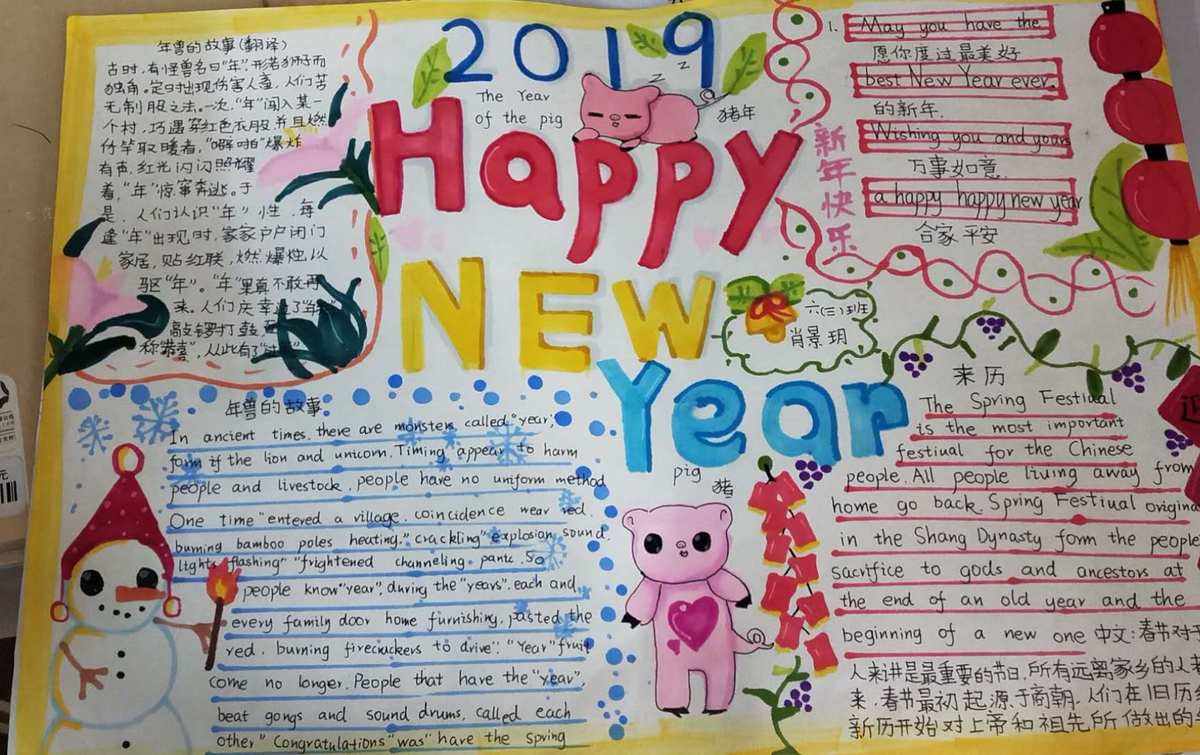 2019
The Year
of the pig
z z z
猪年
Happy
NEW
Year
年兽的故事(翻译)
古时,有怪兽名曰"年",形若狮子而
独角。定时出现伤害人畜,人们苦
无制服之法。一次,"年"闯入某一
个村,巧遇穿红色衣服并且燃
竹竿取暖者,"噼啪"爆炸
有声,红光闪闪照耀
着,"年"惊窜奔逃。于
是,人们认识"年"性,每
逢"年"出现时,家家户户闭门
家居,贴红联,燃爆竹,以
驱"年"。"年"果真不敢再
来。人们庆幸过了"年"
敲锣打鼓
称"恭喜",从此有了
1. May you have the
愿你度过最美好
best New Year ever.
的新年.
Wishing you and yours
万事如意,
a happy happy new year
合家平安
新年快乐
六(三)班
肖景玥
年兽的故事
In ancient times, there are monsters called "year",
form if the lion and unicorn. Timing appear to harm
people and livestock, people have no uniform method
One time "entered a village, coincidence wear red,
burning bamboo poles heating." crackling" explosion sound,
lights flashing" "frightened channeling panic. So
people know "year", during the "years", each and
every family door home furnishing, pasted the
red, burning firecrackers to drive". "Year" fruit
come no longer. People that have the "year",
beat gongs and sound drums, called each
other" Congratulations" was" have the spring
pig
猪
来历
The Spring Festival
is the most important
festival for the Chinese
people. All people living away from
home go back. Spring Festival origina
in the Shang Dynasty form the people
sacrifice to gods and ancestors at
the end of an old year and the
beginning of a new one 中文:春节对
人来讲是最重要的节日,所有远离家乡的人
来,春节最初起源于商朝,人们在旧历
新历开始对上帝和祖先所做出的